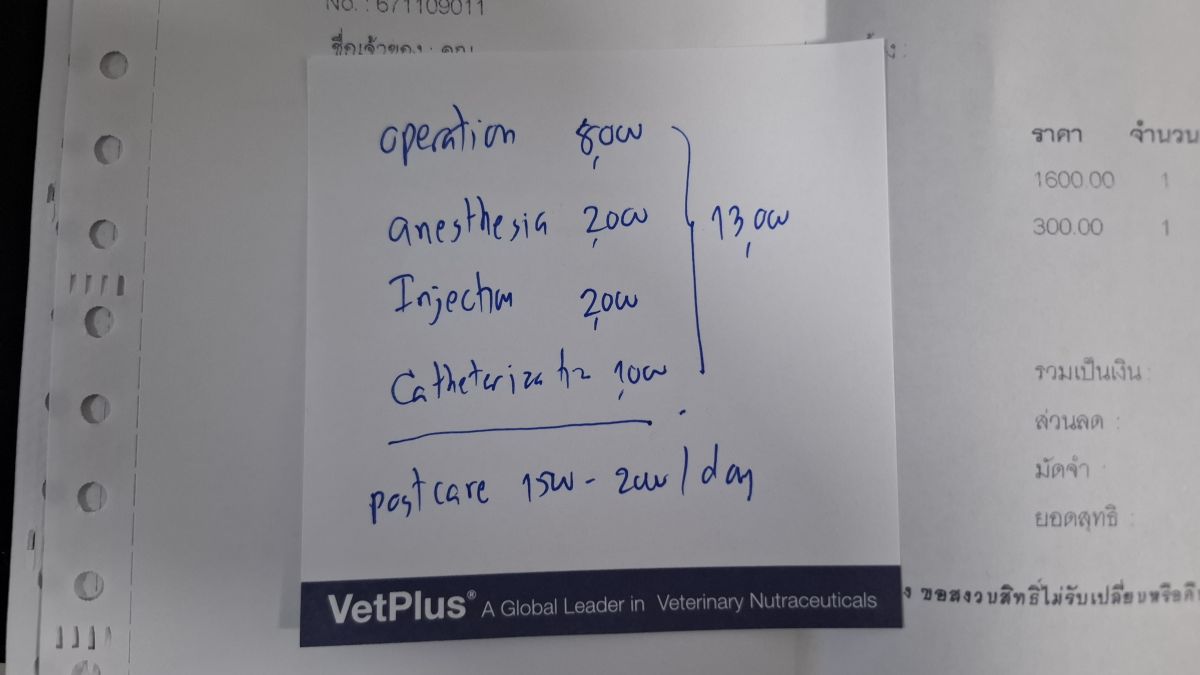 No. : 671109011
ชื่อเจ้าของ : คุณ
operation 8,000
anesthesia 2,000
Injection 2,000
Catheterization 1,000
13,000
postcare 1500 - 2000 / day
VetPlus® A Global Leader in Veterinary Nutraceuticals
ราคา จำนวน
1600.00 1
300.00 1
รวมเป็นเงิน :
ส่วนลด :
มัดจำ
ยอดสุทธิ :
ขอสงวนสิทธิ์ไม่รับเปลี่ยนหรือคื